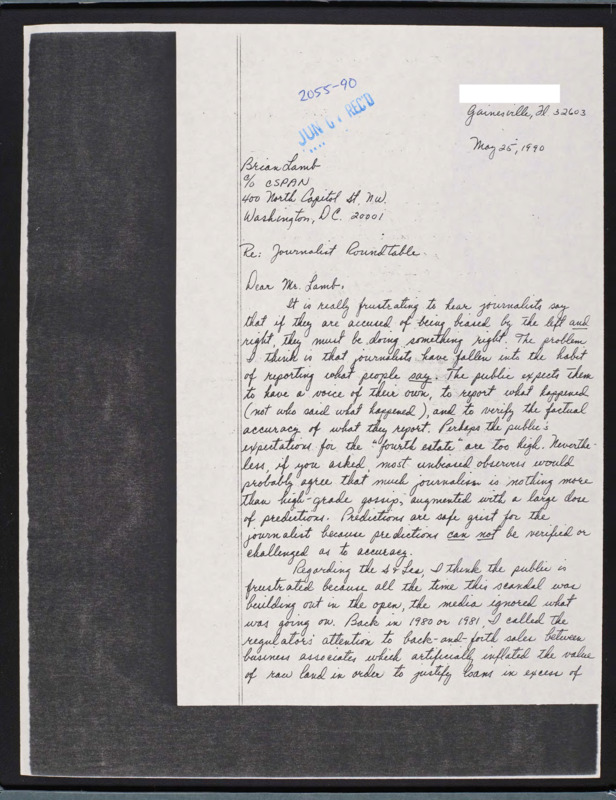 2055-90
JUN 01 REC'D
Gainesville, Fl 32603
May 25, 1990
Brian Lamb
c/o CSPAN
400 North Capitol St. N.W.
Washington, D.C. 20001
Re: Journalist Roundtable
Dear Mr. Lamb,
It is really frustrating to hear journalists say
that if they are accused of being biased by the left and
right, they must be doing something right. The problem
I think is that journalists have fallen into the habit
of reporting what people say. The public expects them
to have a voice of their own, to report what happened
(not who said what happened), and to verify the factual
accuracy of what they report. Perhaps the public's
expectations for the "fourth estate" are too high. Neverthe-
less, if you asked, most unbiased observers would
probably agree that much journalism is nothing more
than high-grade gossip, augmented with a large dose
of predictions. Predictions are safe grist for the
journalist because predictions can not be verified or
challenged as to accuracy.
Regarding the S & Ls, I think the public is
frustrated because all the time this scandal was
building out in the open, the media ignored what
was going on. Back in 1980 or 1981, I called the
regulators' attention to back-and-forth sales between
business associates which artificially inflated the value
of raw land in order to justify loans in excess of